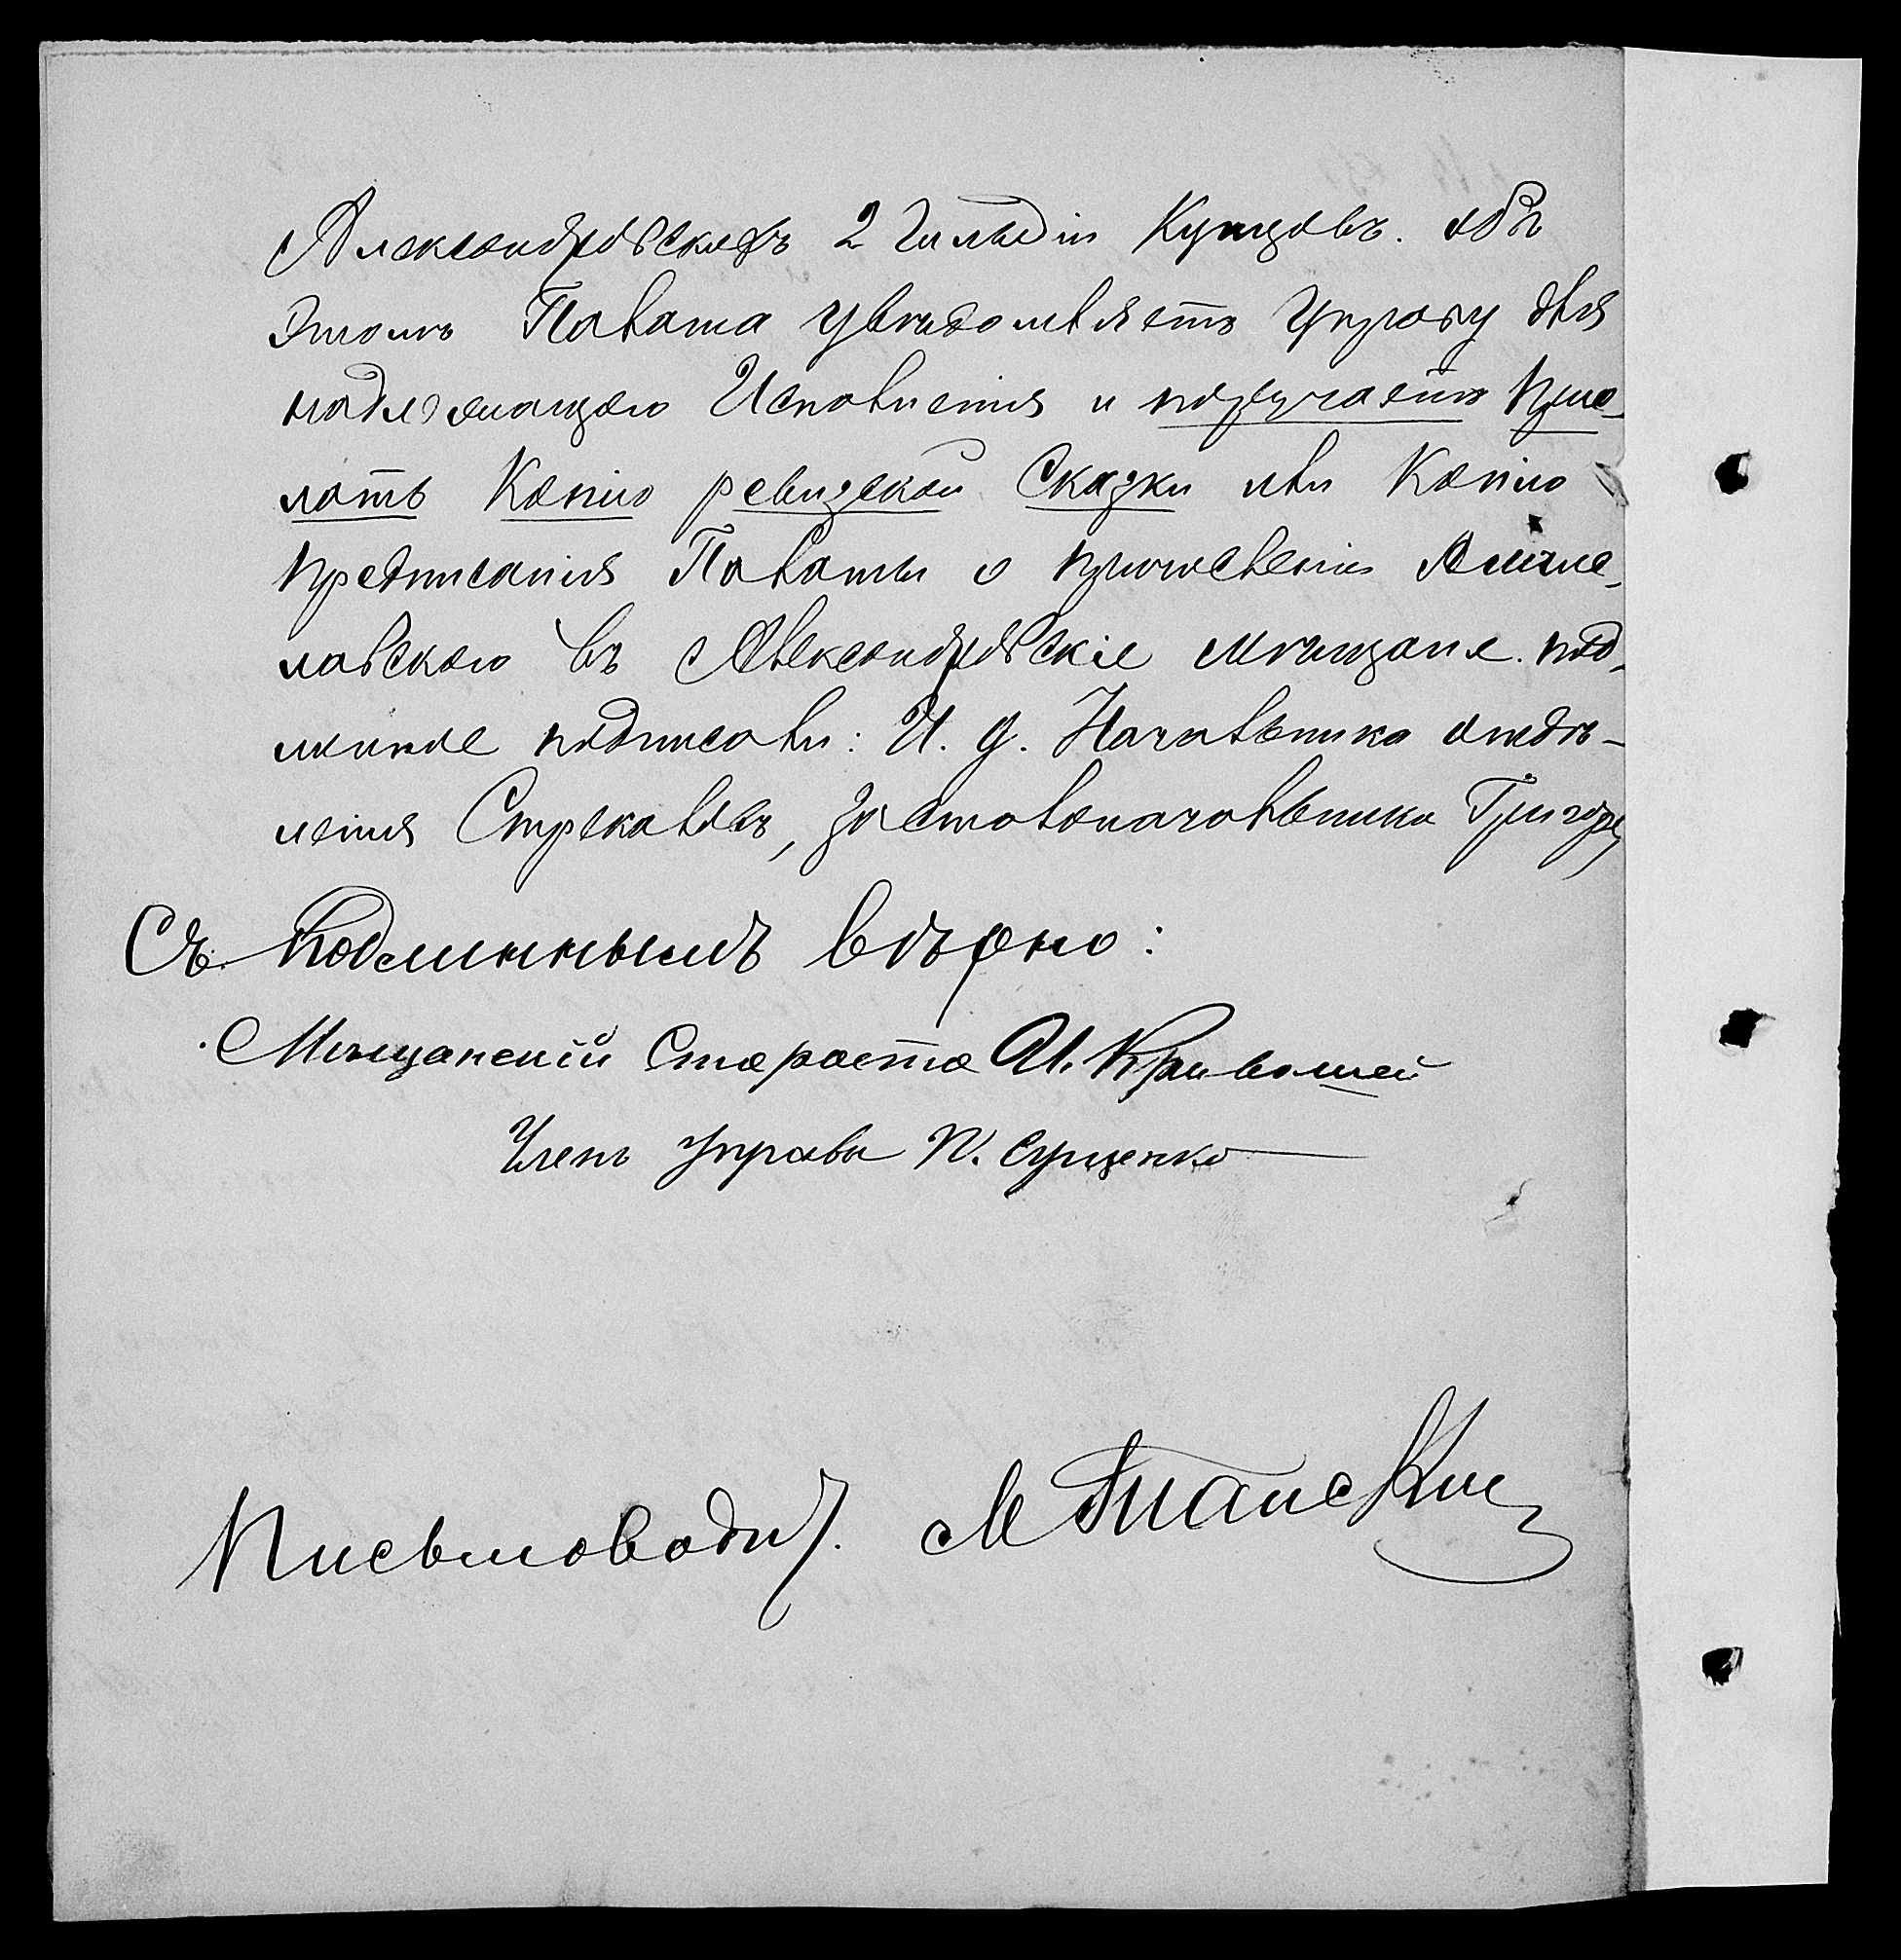 Александровскихъ 2 Гильдіи Купцовъ. объ
этомъ Палата увѣдомляетъ Управу для
надлежащаго Исполненія и поручаетъ При-
лать Копію ревизской Сказки или Копію
предписанія Палаты о причисленіи
лавскаго въ Александровскіе мѣщане. под-
линное подписали: И. д. Начальника отдѣ-
ленія Стрекаловъ, за столоначальника
Съ подлиннымъ вѣрно:
Мѣщанскій Староста И. Кривошей
Членъ управы П. Сущенко
Письмоводит. М